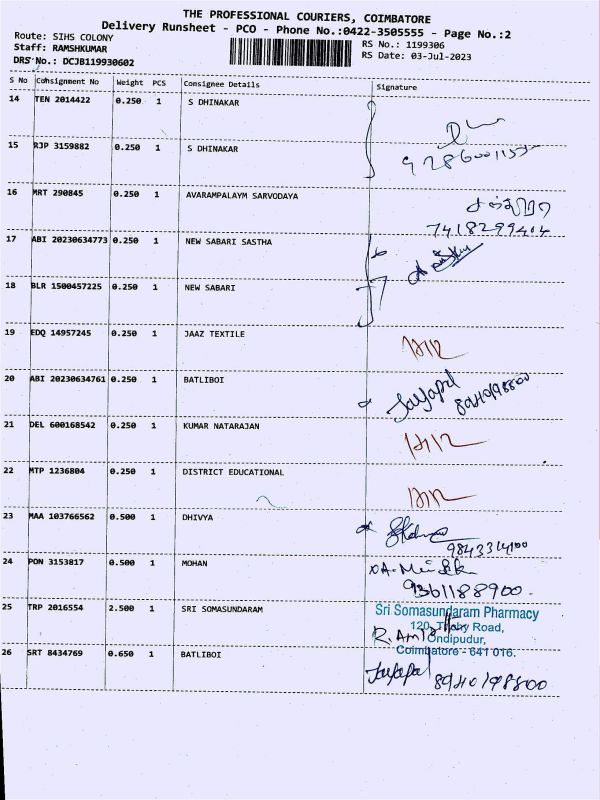 THE PROFESSIONAL COURIERS, COIMBATORE
Delivery Runsheet - PCO - Phone No.:0422-3505555 - Page No.:2
Route: SIHS COLONY
Staff: RAMSHKUMAR
DRS No.: DCJB119930602
RS No.: 1199306
RS Date: 03-Jul-2023
S No Consignment No Weight PCS Consignee Details Signature
14 TEN 2014422 0.250 1 S DHINAKAR
15 RJP 3159882 0.250 1 S DHINAKAR
16 MRT 290845 0.250 1 AVARAMPALAYM SARVODAYA
7418299414
17 ABI 20230634773 0.250 1 NEW SABARI SASTHA
18 BLR 1500457225 0.250 1 NEW SABARI
19 EDQ 14957245 0.250 1 JAAZ TEXTILE
20 ABI 20230634761 0.250 1 BATLIBOI Jayapal
21 DEL 600168542 0.250 1 KUMAR NATARAJAN
22 MTP 1236804 0.250 1 DISTRICT EDUCATIONAL
23 MAA 103766562 0.500 1 DHIVYA
9843314100
24 PON 3153817 0.500 1 MOHAN
9361188900.
25 TRP 2016554 2.500 1 SRI SOMASUNDARAM
Sri Somasundaram Pharmacy
Road,
Ondipudur,
Coimbatore - 641 016.
26 SRT 8434769 0.650 1 BATLIBOI Jayapal